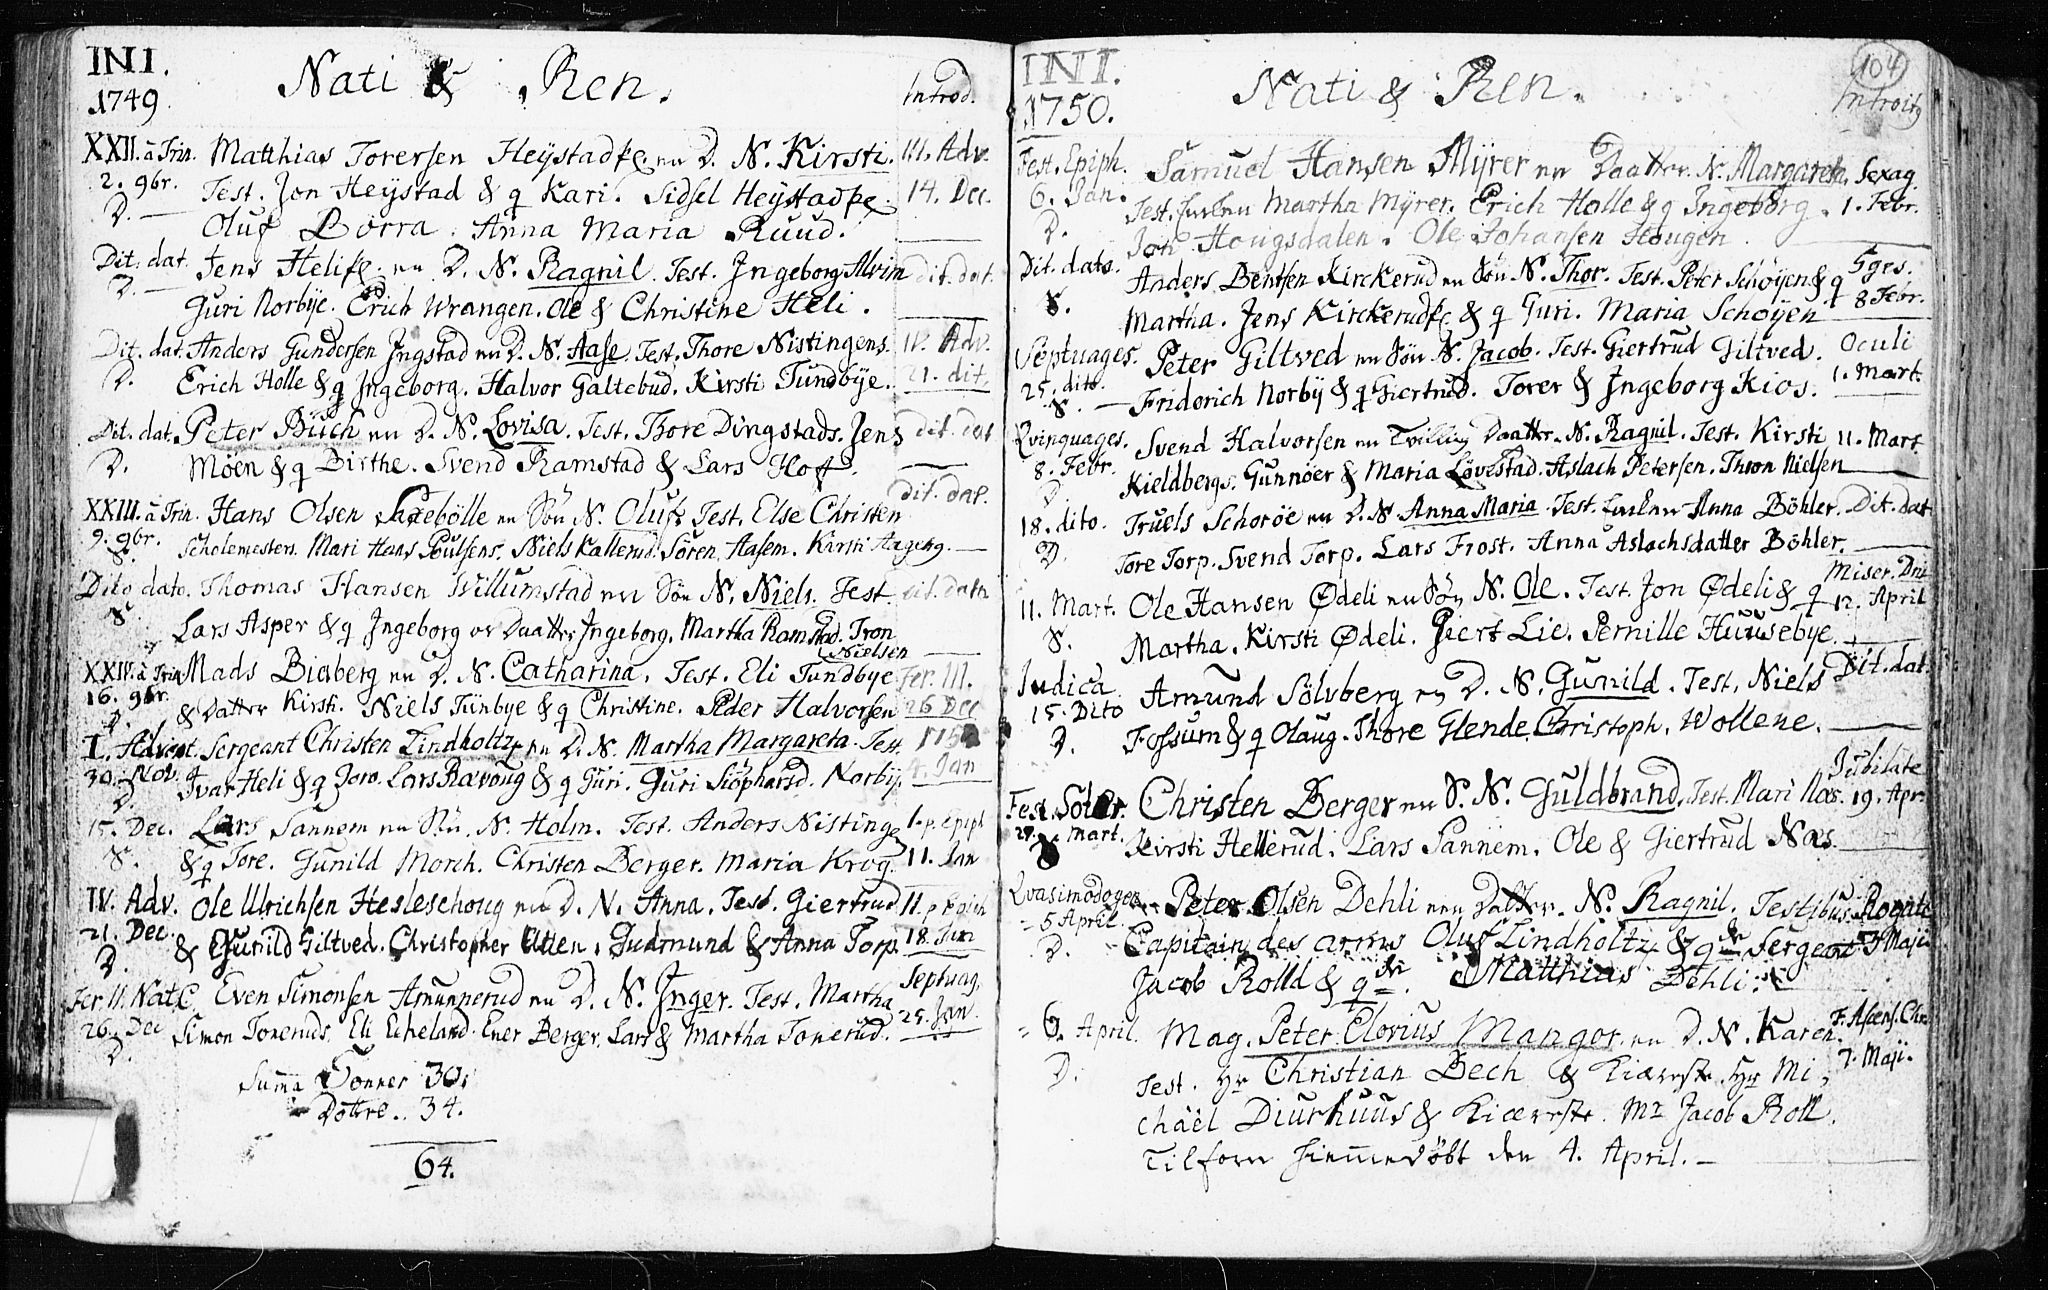 INI.
1749.
Nati & Ren.
Introd.
XXII. à Trin. Matthias Torersen Heystadsk. en D. N. Kirsti. III. Adv.
2. 9br. Test. Jon Heystad & q Kari. Sidsel Heystadsk. 14. Dec.
D. Oluf Borra. Anna Maria Ruud.
Dit. dat. Jens Helisk. en D. N. Ragnil. Test. Ingeborg Alvim dit. dat.
D. Guri Norbye. Erich Wrangen. Ole & Christine Heli.
Dit. dat. Anders Gundersen Ingstad en D. N. Aase. Test. Thore Nistingens. IV. Adv.
D. Erich Holle & q Ingeborg. Halvor Galtebud. Kirsti Tundbye. 21. dit.
Dit. dat. Peter Büch en D. N. Lovisa. Test. Thore Dingstads. Jens dit. dat
D. Möen & q Birthe. Svend Ramstad & Lars Hof.
XXIII. à Trin. Hans Olsen Saxebölle en Sön N. Oluf. Test. Else Christen dit. dat.
9. 9br. Scholemesters. Mari Hans Poulsens. Niels Kallerud. Sören Aasem. Kirsti
S.
Dito dato. Thomas Hansen Willumstad en Sön N. Niels. Test. dit. dato
S. Lars Asper & q Ingeborg os Daatter Ingeborg. Martha Ramstad. Tron
Nielsen
XXIV. à Trin. Mads Bierberg en D. N. Catharina. Test. Eli Tundbye Fer. III.
16. 9br. & Datter Kirsti. Niels Tünbye & q Christine. Peder Halvorsen 26 Dec
D.
I. Advent. Sergeant Christen Lindholtz en D. N. Martha Margareta. Test. 1750
30. Nov. Ivar Heli & q Joro. Lars Ravoug & q Guri. Guri Norby. 4. Jan
D.
15. Dec. Lars Sannem en Sön. N. Holm. Test. Anders Nistinge 1. p. Epiph
S. & q Tore. Gunild Morch. Christen Berger. Maria Krog. 11. Jan
IV. Adv. Ole Ulrichsen Hesleschoug en D. N. Anna. Test. Giertrud II. p Epiph
21. Dec. & Gunild Giltved. Christopher Utten. Gudmund & Anna Torp. 18. Jan
D.
Fer. II. Nat. C. Even Simonsen Amunnerud en D. N. Inger. Test. Martha Septuag.
26. Dec Simon Toneruds. Eli Echeland. Ener Berger. Lars & Martha Tonerud. 25. Jan.
D.
Summa Sönner 30.
Döttre.. 34.
64.
INI.
1750.
Nati & Ren.
104
Introit
Fest. Epiph. Samuel Hansen Myrer en Daatter. N. Margareta. Sexag.
6. Jan. Test. Martha Myrer. Erich Holle & q Ingeborg. 1. Febr.
D. Jon Hougsdalen. Ole Johansen Hougen.
Dit. dato. Anders Bentsen Kirckerud en Sön N. Thor. Test. Peter Schöyen & q 5ges.
S. Martha. Jens Kirckerudsk. & q Guri. Maria Schöyen 8 Febr.
Septuages. Peter Giltved en Sön N. Jacob. Test. Giertrud Giltved. Oculi
25. dito. Friderich Norby & q Giertrud. Torer & Ingeborg Kios. 1. Mart.
S.
Qvinquages. Svend Halvorsen en Tvilling Daatter. N. Ragnil. Test. Kirsti 11. Mart.
8. Febr. Kieldbergs. Gunnöer & Maria Lövestad. Aslach Petersen. Thron Nielsen
D.
18. dito. Truels Schoröe en D. N. Anna Maria. Test. Anna Böhler. Dit. dat
D. Tore Torp. Svend Torp. Lars Frost. Anna Aslachsdatter Böhler.
Miser. Dni
11. Mart. Ole Hansen Ødeli en Sön N. Ole. Test. Jon Ødeli & q 12. April
S. Martha. Kirsti Ødeli. Giert Lie. Pernille Huusebye.
Judica Amund Sölvberg en D. N. Gunild. Test. Niels Dit. dat.
15. Dito Fossum & q Olaug. Thore Glende. Christoph. Wollene.
D.
Jubilate
Fest. Christen Berger en S. N. Guldbrand. Test. Mari Næs. 19. Apr.
29. Mart. Kirsti Hellerud. Lars Sannem. Ole & Giertrud Næs.
S.
Qvasimodogen. Peter Olsen Dehli een Datter. N. Ragnil. Testibus Rogate
5 April. Capitain des arms Oluf Lindholtz & q Sergeant 3 Maji
D. Jacob Rolld & q. Matthias Dehli.
6. April. Mag. Peter Clovius Mangor. en D. N. Karen. F. Ascens. Chr
D. Test. Hr Christian Bech & Kiæreste. Hr Mi, 7. Maji.
chäel Diurhuus & Kiæreste. Mr Jacob Roll.
Tilforn hiemmedöbt den 4. April.